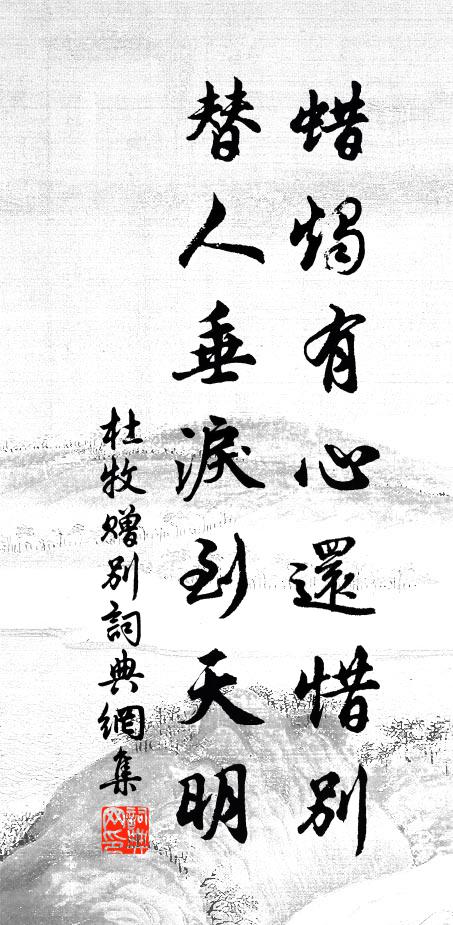 蜡燭有心還惜別
替人垂淚到天明
杜牧贈別詞典網集